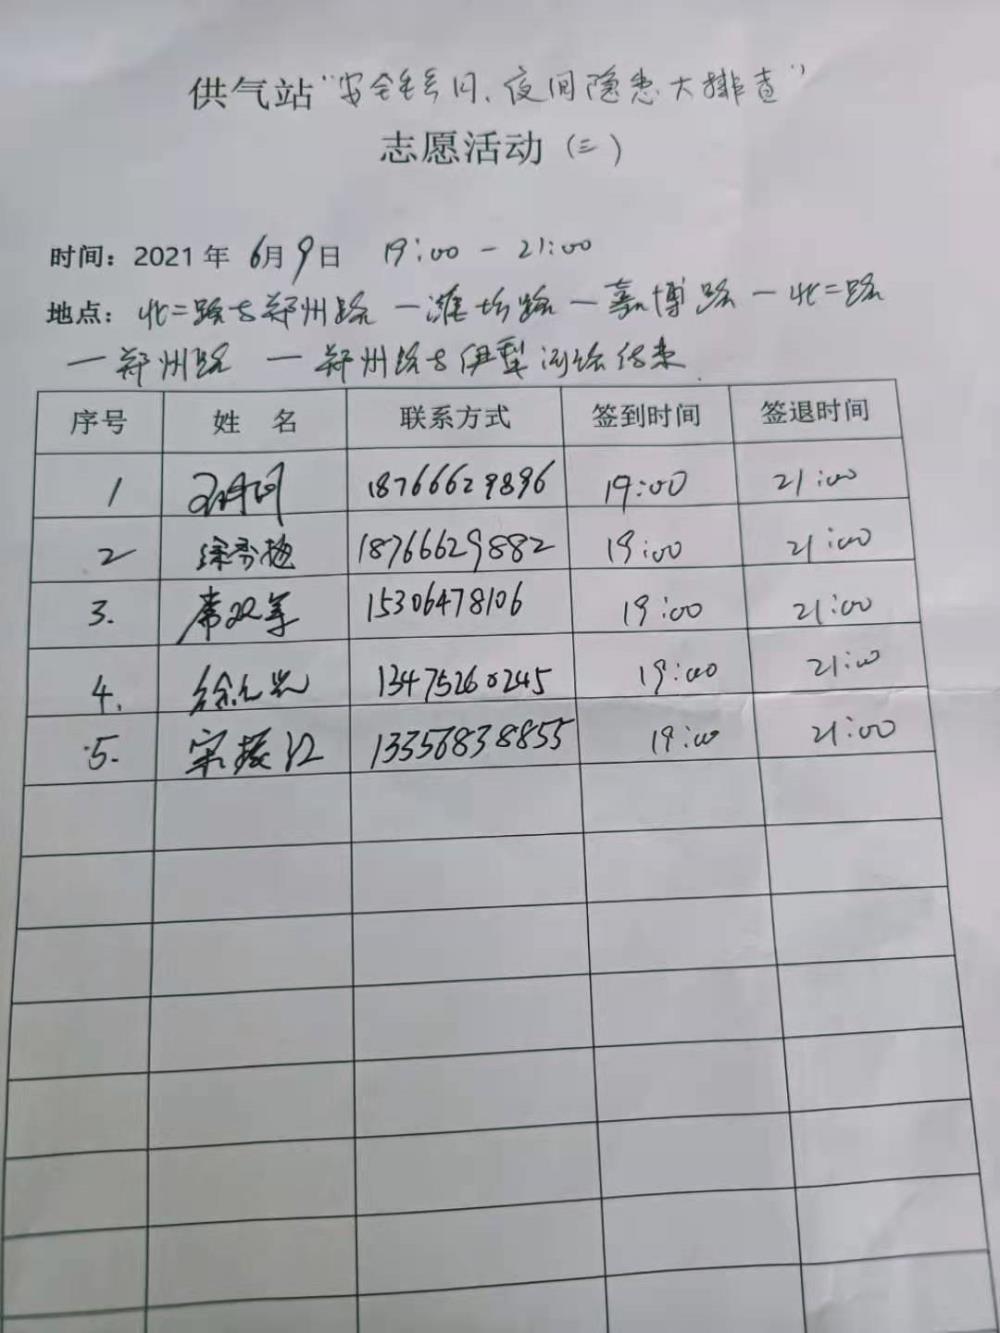 供气站"安全生产月、夜间隐患大排查"
志愿活动(三)
时间：2021年 6月9日 19:00 - 21:00
地点：北二路与郑州路 — 潍坊路 — 嘉博路 — 北二路
— 郑州路 — 郑州路与伊犁河路结束
序号 姓 名 联系方式 签到时间 签退时间
1 18766629896 19:00 21:00
2 18766629882 19:00 21:00
3. 常双军 15306478106 19:00 21:00
4. 13475260245 19:00 21:00
5. 宋振江 13356838855 19:00 21:00